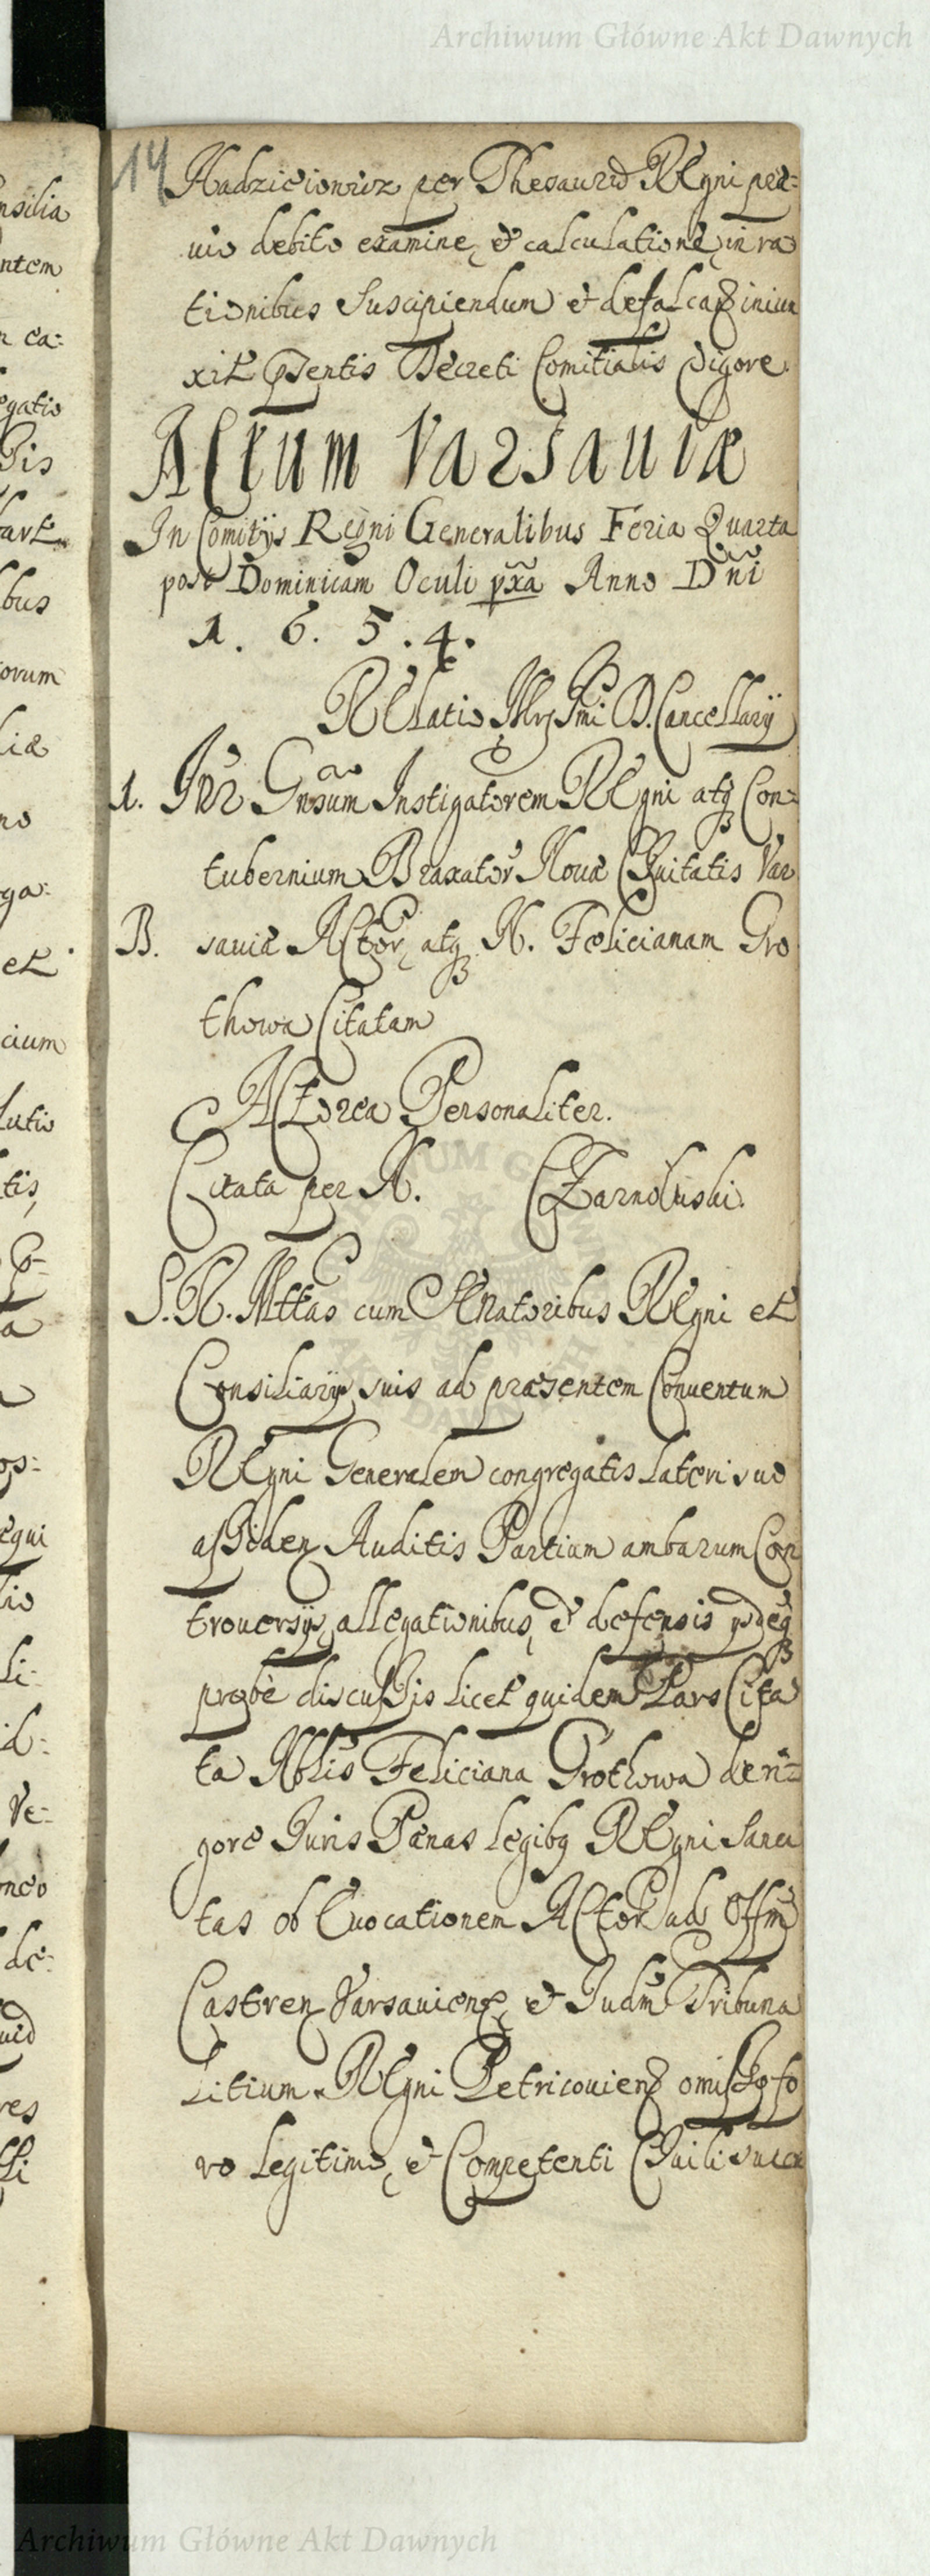 Archiwum Główne Akt Dawnych
14
Hadziewicz per Thesaurũ Regni præ:
uio debito examine, et calculatione, in ra
tionibus Suscipiendum et defalcan iniun
xit pñtis Decreti Comitialis vigore.
Actum Varsauiæ
In Comitijs Regni Generalibus Feria Quarta
post Dominicam Oculi pxã Anno Dñi
1. 6. 5. 4.
Relatio D. Cancellarij
1. Inter Instigatorem Regni atq Con=
tubernium Braxator Nouæ Ciuitatis Var
B. sauiæ Actor, atq N. Felicianam Gro
thowa Citatam
Actorea Personaliter.
Citata per N. Czarnoluski.
S. R. Mttas cum Senatoribus Regni et
Consiliarijs suis ad præsentem Conuentum
Regni Generalem congregatis lateri suo
assiden Auditis Partium ambarum Con
trouersijs, allegationibus, et defensis ysdeq
probè discussis licet quidem Pars Cita
ta Nblis Feliciana Grothowa de ri=
gore Iuris Pænas legibq Regni Sanci
tas ob Euocationem Actor ad Offm
Castren Varsauien, et Iudm Tribuna
litium Regni Petricouien omisso fo
ro legitimo, et Competenti Ciuili
nsilia
ntem
n ca:
egatio
bus
orum
liæ
no
ga:
et
cium
lutio
tis,
a
os:
equi
li:
Ve:
de:
res
Archiwum Główne Akt Dawnych